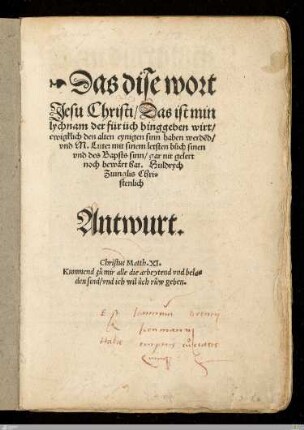 Das dise wort
Jesu Christi / Das ist min
lychnam der für üch hinggeben wirt /
ewigklich den alten eynigen sinn haben werdend /
vnd M. Luter mit sinem letsten bůch sinen
vnd des Bapsts sinn / gar nit gelert
noch bewärt hat. Huldrych
Zuinglis Chri-
stenlich
Antwurt.
Christus Matth. XI.
Kummend zů mir alle die arbeytend vnd bela-
den sind / vnd ich wil üch růw geben.